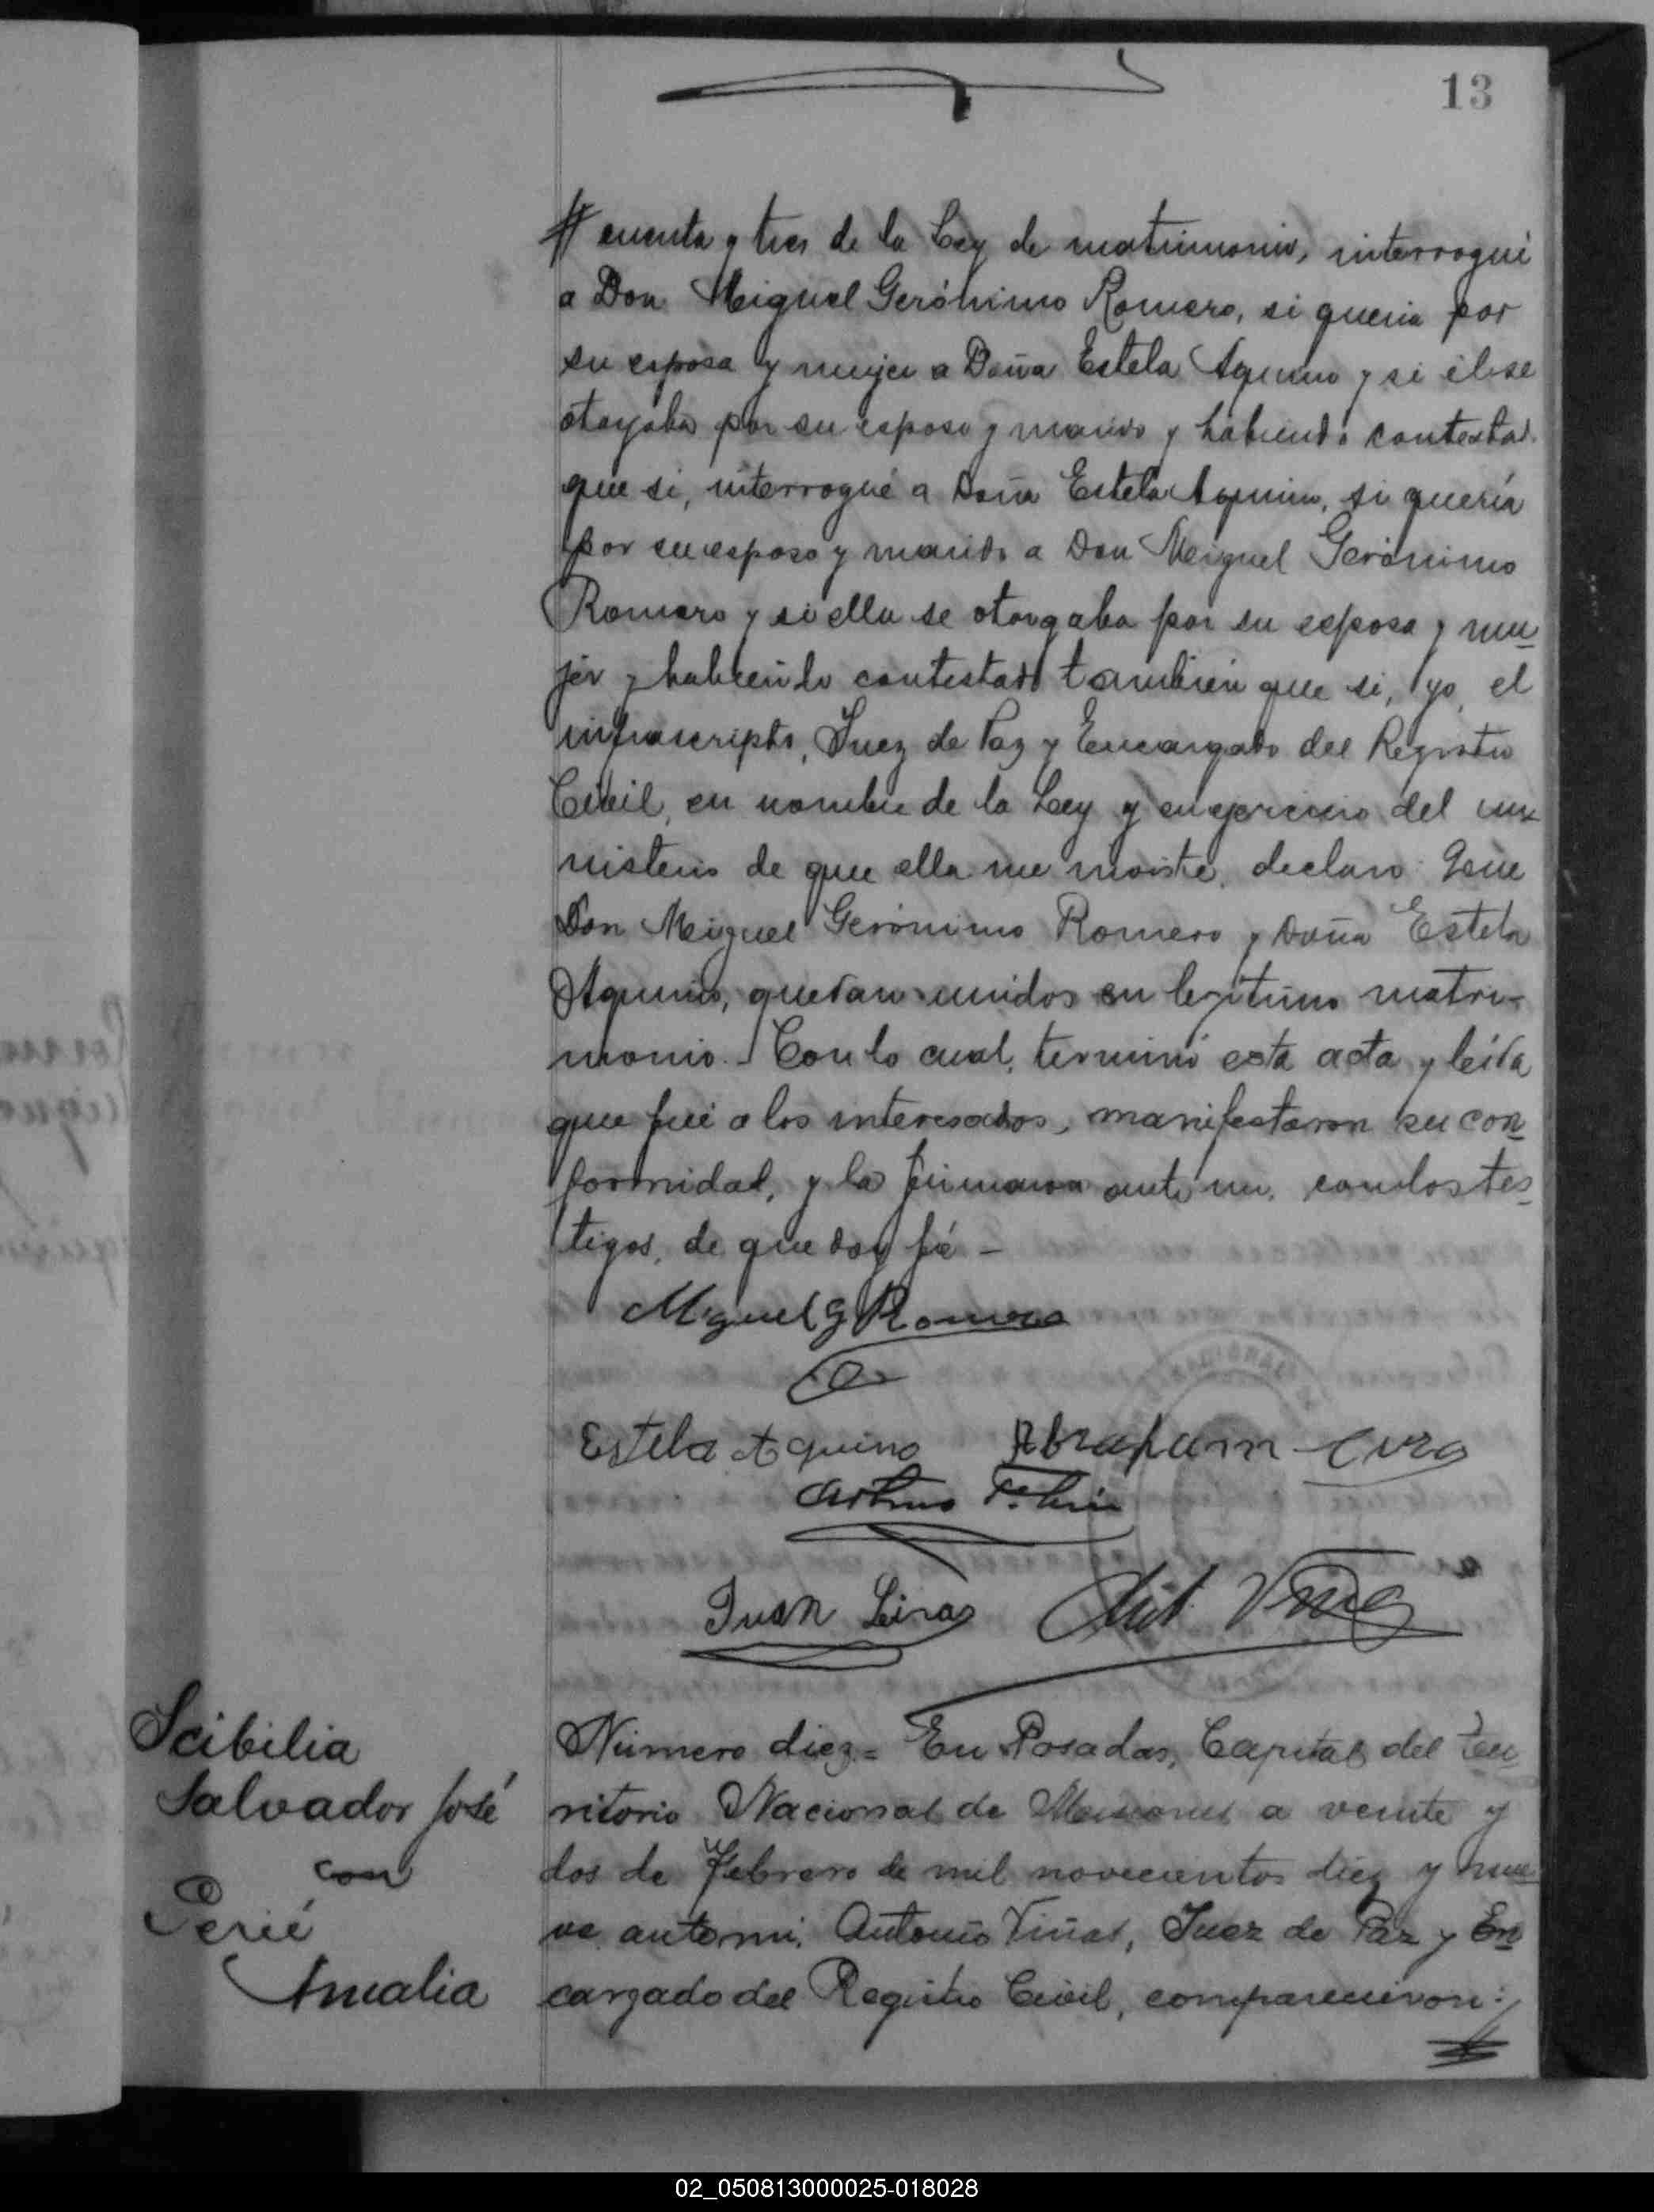 13
cuenta y tres de la Ley de matrimonio, interrogué
a Don Miguel Gerónimo Romero, si queria por
su esposa y mujer a Doña Estela Aquino y si él se
otorgaba por su esposo y marido y habiendo contestado
que si, interrogué a Doña Estela Aquino, si quería
por su esposo y marido a Don Miguel Gerónimo
Romero y si ella se otorgaba por su esposa y mu
jer y habiendo contestado también que si, yo, el
infrascripto, Juez de Paz y Encargado del Registro
Civil, en nombre de la Ley y en ejercicio del mi
nisterio de que ella me inviste, declaro: Que
Don Miguel Gerónimo Romero y Doña Estela
Aquino, quedan unidos en legítimo matri-
monio.- Con lo cual, terminó esta acta y leída
que fué a los interesados, manifestaron su con
formidad, y la firmaron ante mi, con los tes
tigos, de que doy fé -
Miguel G Romero
Estela Aquino Abraham
Arturo
Juan Leiras Ant. Viñas
Scibilia
Salvador José
con
Perié
Amalia
Número diez = En Posadas, Capital del Ter
ritorio Nacional de Misiones a veinte y
dos de Febrero de mil novecientos diez y nue
ve ante mi, Antonio Viñas, Juez de Paz y En
cargado del Registro Civil, comparecieron:
02_050813000025-018028